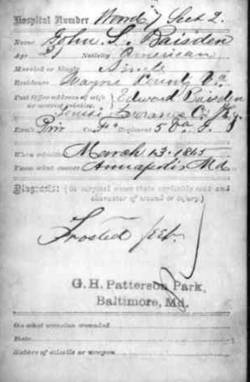 Hospital Number Ward 7 Sect 2.
Name John S. Baisden
Age 21 Nativity American
Married or Single Single
Residence Wayne County Va
Post Office address of wife Edward Baisden
or nearest relative. Louisa Co. Ky.
Regiment 5 Va
When admitted March 13. 1865
From what source Annapolis Md.
Diagnosis: (In surgical cases state explicitly seat and
character of wound or injury)
Frosted feet.
G. H. Patterson Park,
Baltimore, Md.
On what occasion wounded
Date
Nature of missile or weapon